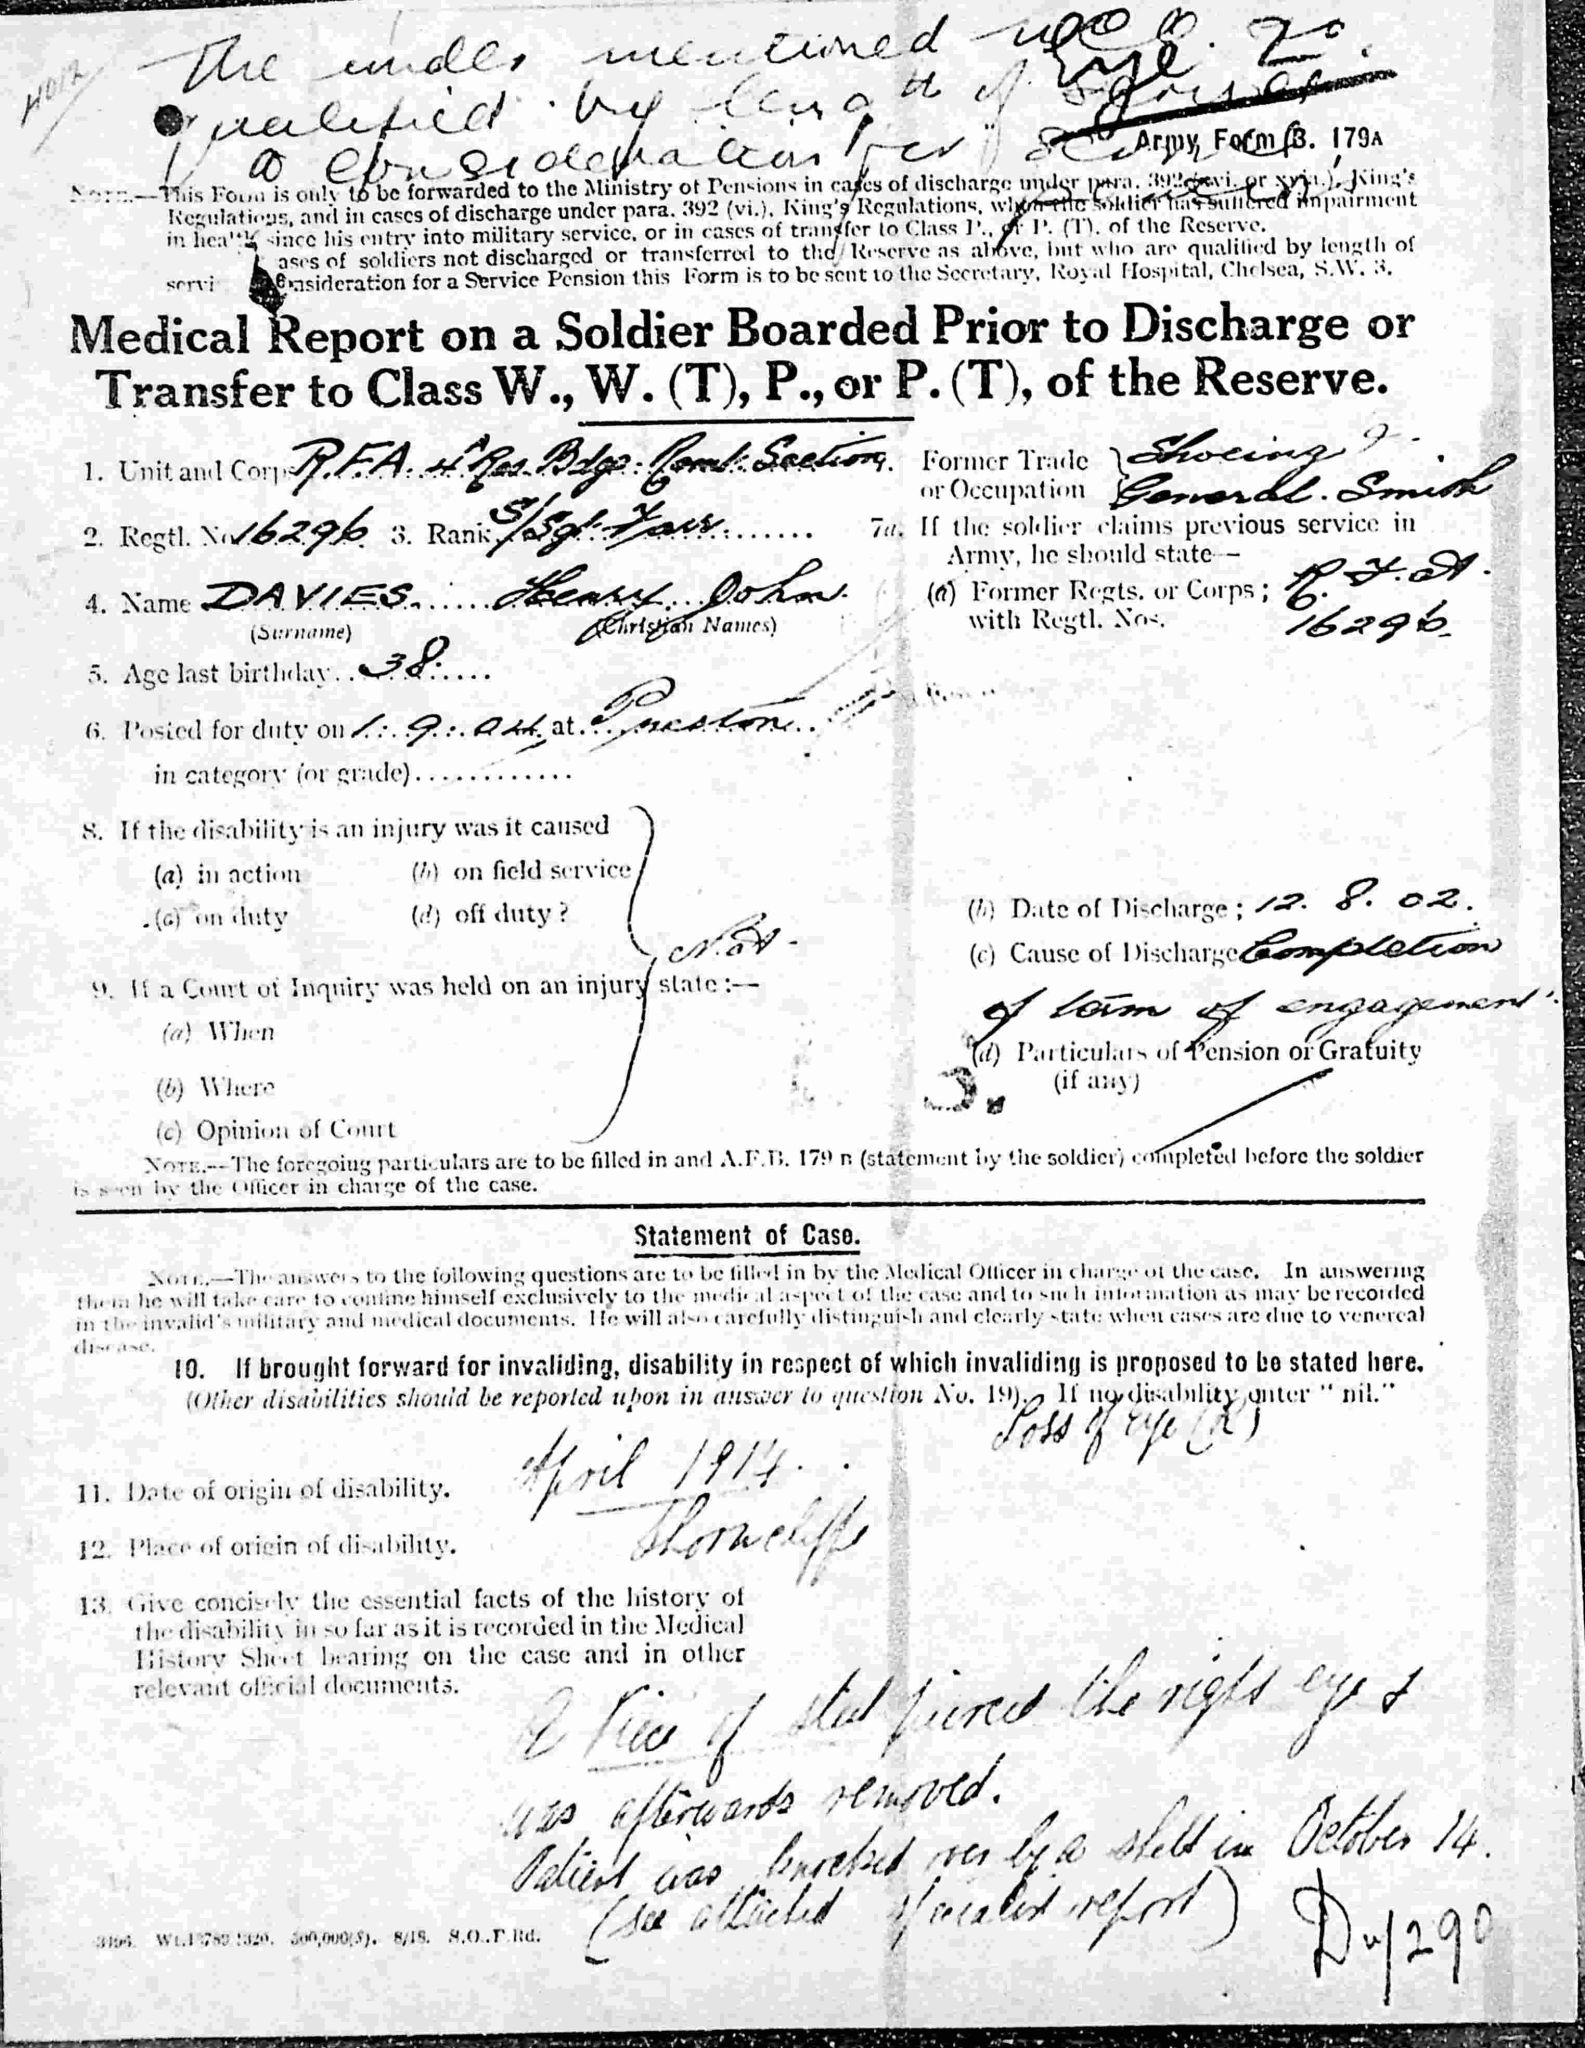 H012
The under mentioned N.C.O. is
qualified by length of
a consideration for
Army Form B. 179A
NOTE.—This Form is only to be forwarded to the Ministry of Pensions in cases of discharge under para. 392 (xvi. or xvia.), King's
Regulations, and in cases of discharge under para. 392 (vi.), King's Regulations, when the soldier has suffered impairment
in health since his entry into military service, or in cases of transfer to Class P., or P. (T), of the Reserve.
ases of soldiers not discharged or transferred to the Reserve as above, but who are qualified by length of
servi onsideration for a Service Pension this Form is to be sent to the Secretary, Royal Hospital, Chelsea, S.W. 3.
Medical Report on a Soldier Boarded Prior to Discharge or
Transfer to Class W., W. (T), P., or P. (T), of the Reserve.
1. Unit and Corps R.F.A. 4A Res. Bdge. Section.
2. Regtl. No 16296 3. Rank S/Sgt. Farr
4. Name DAVIES Henry John
(Surname) (Christian Names)
5. Age last birthday 38
6. Posted for duty on 1.9.04 at Preston
in category (or grade)
Former Trade or Occupation } Shoeing &
General Smith
7a. If the soldier claims previous service in
Army, he should state—
(a) Former Regts. or Corps; R.F.A.
with Regtl. Nos. 16296.
8. If the disability is an injury was it caused
(a) in action (b) on field service
(c) on duty (d) off duty?
N.A.
9. If a Court of Inquiry was held on an injury state:—
(a) When
(b) Where
(c) Opinion of Court
(b) Date of Discharge; 12. 8. 02.
(c) Cause of Discharge Completion
of term of engagement.
(d) Particulars of Pension or Gratuity
(if any)
3.
NOTE.—The foregoing particulars are to be filled in and A.F.B. 179 B (statement by the soldier) completed before the soldier
is seen by the Officer in charge of the case.
Statement of Case.
NOTE.—The answers to the following questions are to be filled in by the Medical Officer in charge of the case. In answering
them he will take care to confine himself exclusively to the medical aspect of the case and to such information as may be recorded
in the invalid's military and medical documents. He will also carefully distinguish and clearly state when cases are due to venereal
disease.
10. If brought forward for invaliding, disability in respect of which invaliding is proposed to be stated here.
(Other disabilities should be reported upon in answer to question No. 19). If no disability enter "nil."
Loss of Eye (R)
11. Date of origin of disability. April 1914.
12. Place of origin of disability. Shorncliffe
13. Give concisely the essential facts of the history of
the disability in so far as it is recorded in the Medical
History Sheet bearing on the case and in other
relevant official documents.
A Piece of steel pierced the right eye &
was afterwards removed.
Patient was knocked over by a shell in October 14.
(see attached specialist report)
3496. 500,000(3). 8/18. S.O.,F.Rd.
D 290